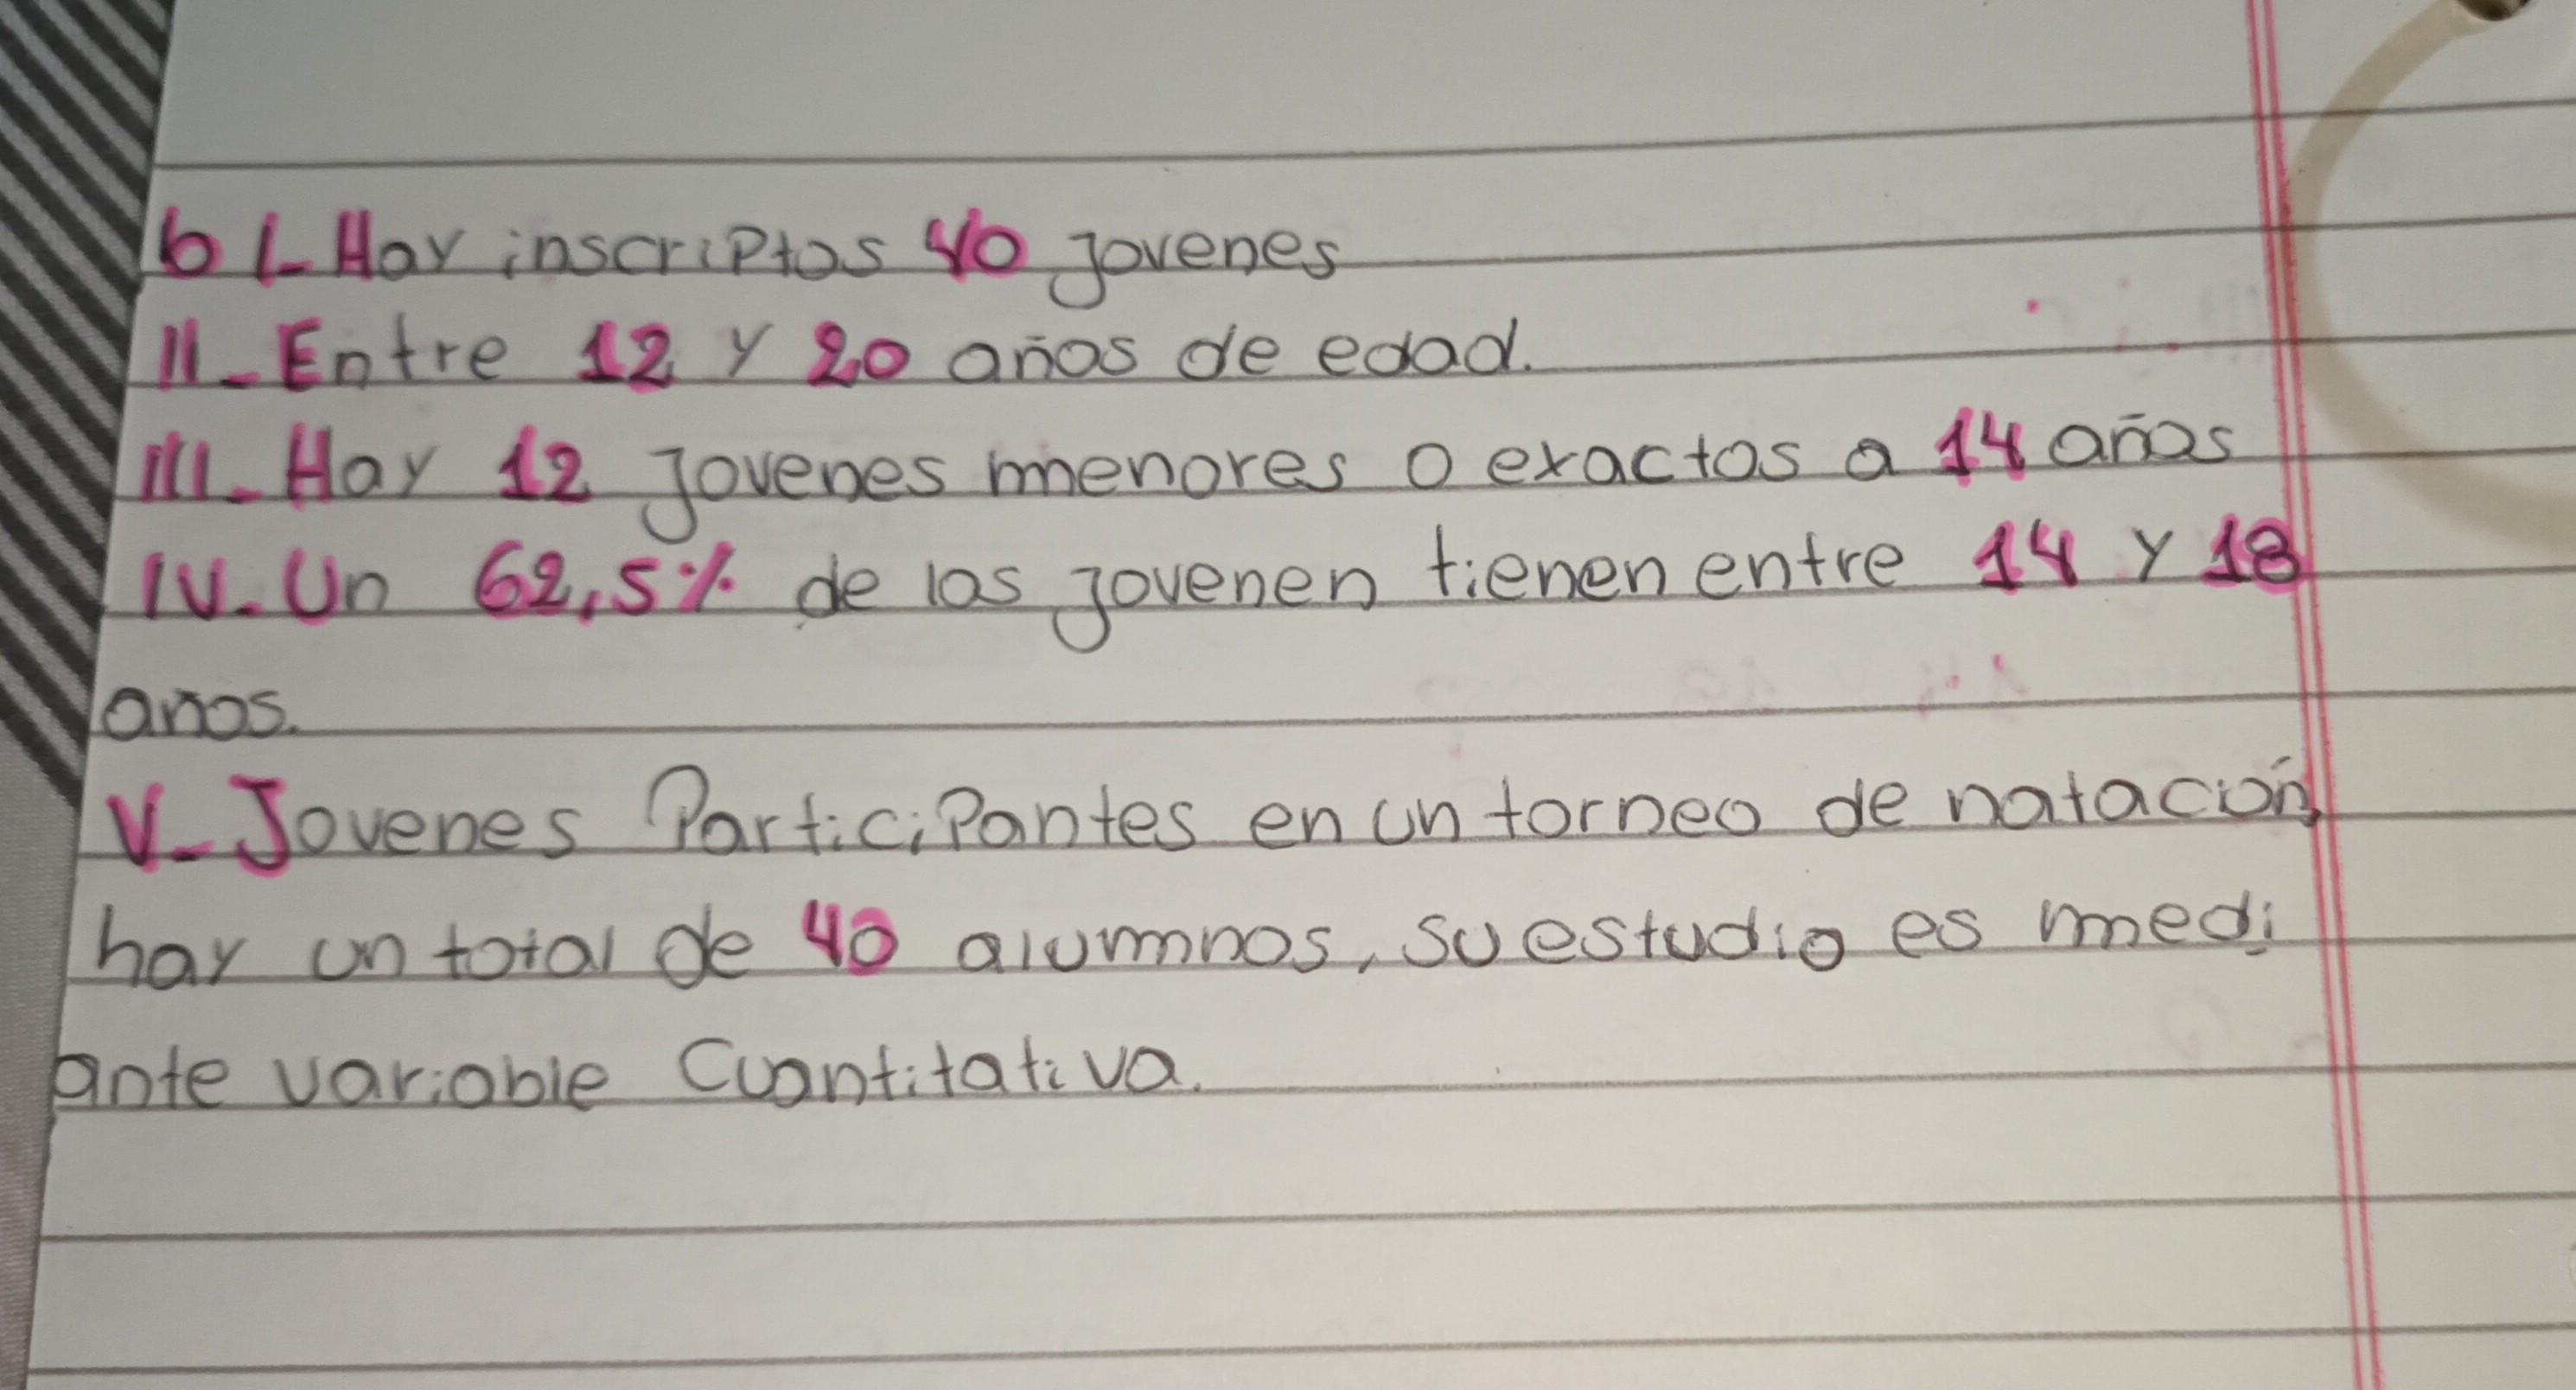 b I- Hay inscriptos 40 jovenes
II- Entre 12 y 20 años de edad.
III- Hay 12 jovenes menores o exactos a 14 años
IV. Un 62,5% de los jovenen tienen entre 14 y 18
años.
V- Jovenes Participantes en un torneo de natación,
hay un total de 40 alumnos, su estudio es medi
ante variable Cuantitativa.